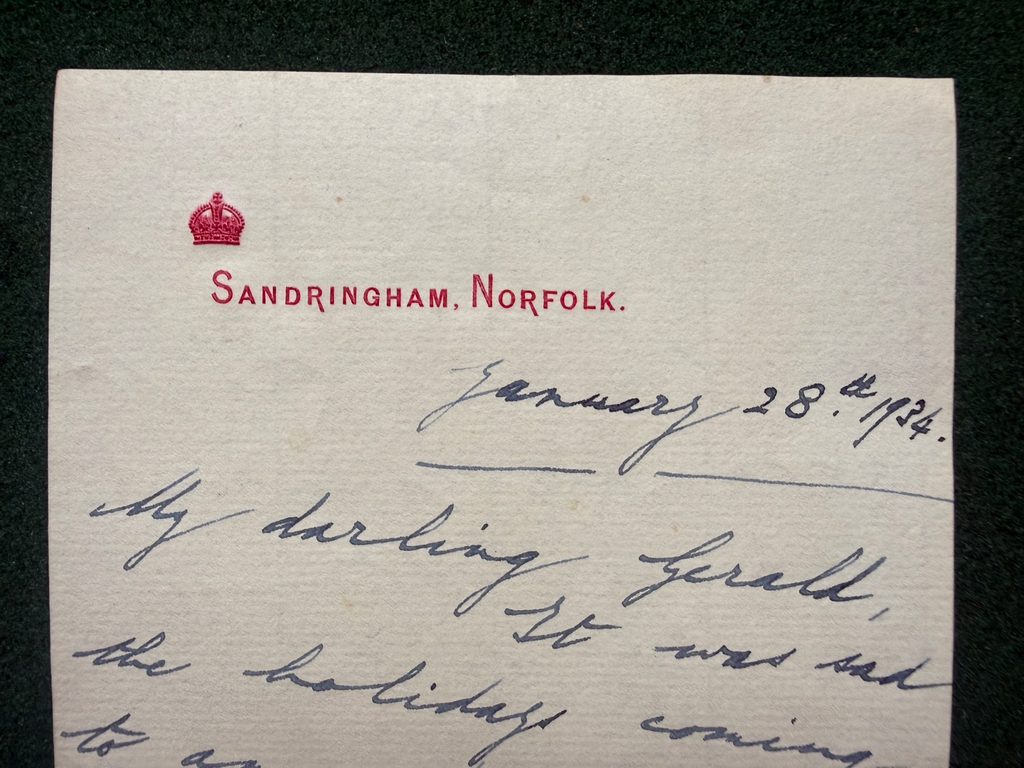 SANDRINGHAM, NORFOLK.
January 28.th 1934.
My darling Gerald,
It was sad
the holidays coming
to an